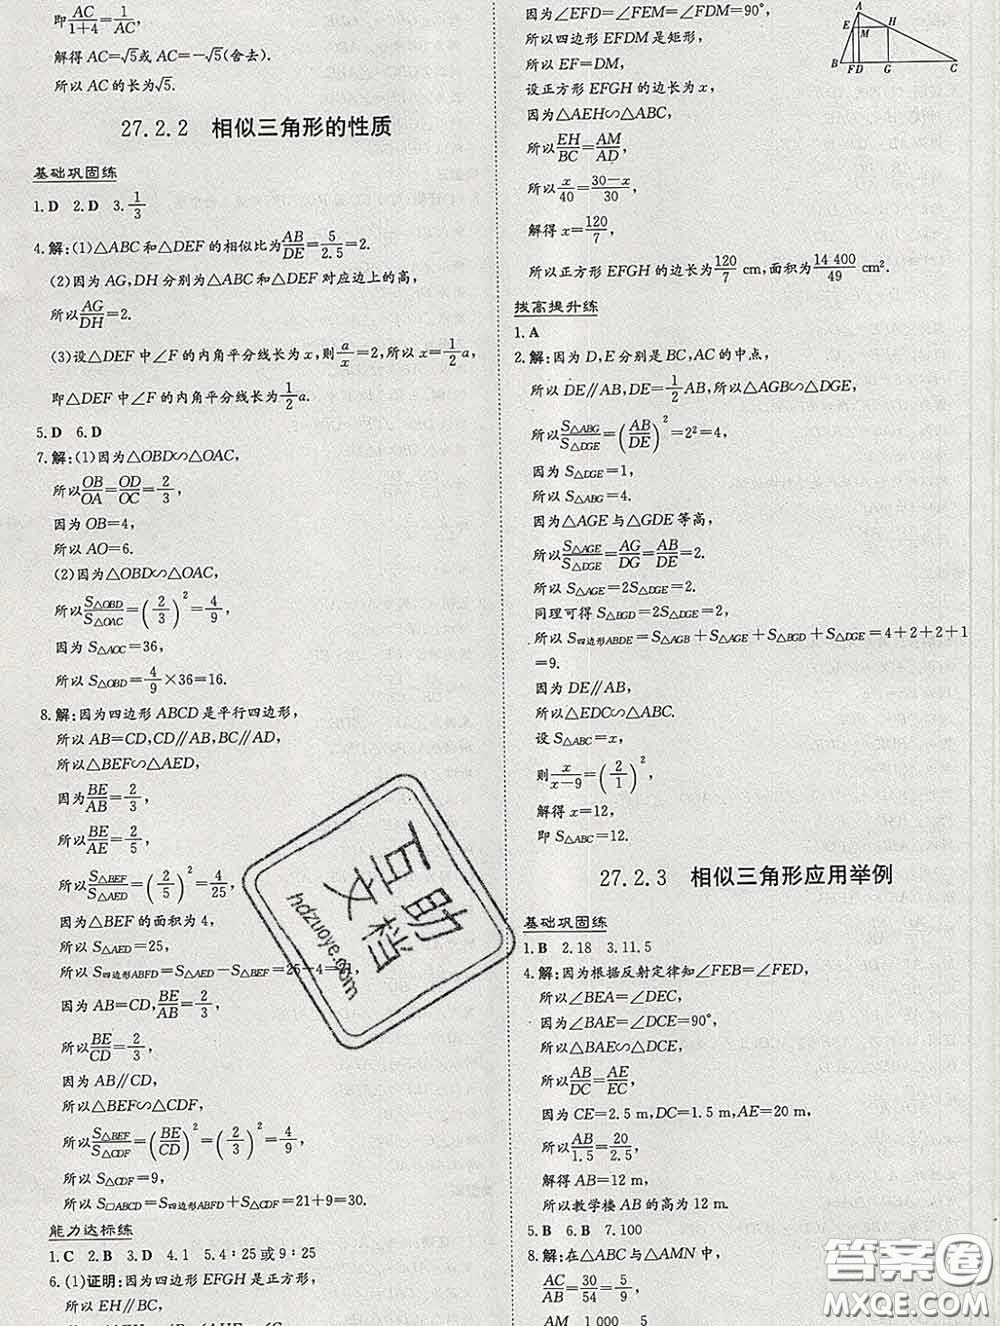 即AC/(1+4)=1/AC,
解得 AC=√5或 AC=-√5(舍去).
所以 AC 的长为√5.
27.2.2 相似三角形的性质
基础巩固练
1. D 2. D 3. 1/3
4. 解:(1)△ABC 和△DEF 的相似比为AB/DE=5/2.5=2.
(2)因为 AG,DH 分别为△ABC 和△DEF 对应边上的高,
所以AG/DH=2.
(3)设△DEF 中∠F 的内角平分线长为 x,则a/x=2,所以 x=1/2a,
即△DEF 中∠F 的内角平分线长为1/2a.
5. D 6. D
7. 解:(1)因为△OBD∽△OAC,
所以OB/OA=OD/OC=2/3,
因为 OB=4,
所以 AO=6.
(2)因为△OBD∽△OAC,
所以S△OBD/S△OAC=(2/3)²=4/9,
因为 S△AOC=36,
所以 S△OBD=4/9×36=16.
8. 解:因为四边形 ABCD 是平行四边形,
所以 AB=CD,CD∥AB,BC∥AD,
所以△BEF∽△AED,
因为BE/AB=2/3,
所以BE/AE=2/5,
所以S△BEF/S△AED=(2/5)²=4/25,
因为△BEF 的面积为 4,
所以 S△AED=25,
所以 S四边形ABFD=S△AED-S△BEF=25-4=21,
因为 AB=CD,BE/AB=2/3,
所以BE/CD=2/3,
因为 AB∥CD,
所以△BEF∽△CDF,
所以S△BEF/S△CDF=(BE/CD)²=(2/3)²=4/9,
所以 S△CDF=9,
所以 S□ABCD=S四边形ABFD+S△CDF=21+9=30.
能力达标练
1. C 2. B 3. D 4. 1 5. 4∶25 或 9∶25
6. (1)证明:因为四边形 EFGH 是正方形,
所以 EH∥BC,
因为∠EFD=∠FEM=∠FDM=90°,
所以四边形 EFDM 是矩形,
所以 EF=DM,
设正方形 EFGH 的边长为 x,
因为△AEH∽△ABC,
所以EH/BC=AM/AD,
所以x/40=(30-x)/30,
解得 x=120/7,
所以正方形 EFGH 的边长为120/7 cm,面积为14 400/49 cm².
A
E M H
B F D G C
拔高提升练
1. A
2. 解:因为 D,E 分别是 BC,AC 的中点,
所以 DE∥AB,DE=1/2AB,所以△AGB∽△DGE,
所以S△ABG/S△DGE=(AB/DE)²=2²=4,
因为 S△DGE=1,
所以 S△ABG=4.
因为△AGE 与△GDE 等高,
所以S△AGE/S△DGE=AG/DG=AB/DE=2.
所以 S△AGE=2S△DGE=2.
同理可得 S△BGD=2S△DGE=2,
所以 S四边形ABDE=S△AGB+S△AGE+S△BGD+S△DGE=4+2+2+1
=9.
因为 DE∥AB,
所以△EDC∽△ABC.
设 S△ABC=x,
则x/(x-9)=(2/1)²,
解得 x=12,
即 S△ABC=12.
27.2.3 相似三角形应用举例
基础巩固练
1. B 2. 18 3. 11.5
4. 解:因为根据反射定律知∠FEB=∠FED,
所以∠BEA=∠DEC,
因为∠BAE=∠DCE=90°,
所以△BAE∽△DCE,
所以AB/DC=AE/EC,
因为 CE=2.5 m,DC=1.5 m,AE=20 m,
所以AB/1.5=20/2.5,
解得 AB=12 m,
所以教学楼 AB 的高为 12 m.
5. B 6. B 7. 100
8. 解:在△ABC 与△AMN 中,
AC/AB=30/54=5/9,
AM 1 000 5
互助文档
hdzuoye.com
答案圈
MXQE.COM